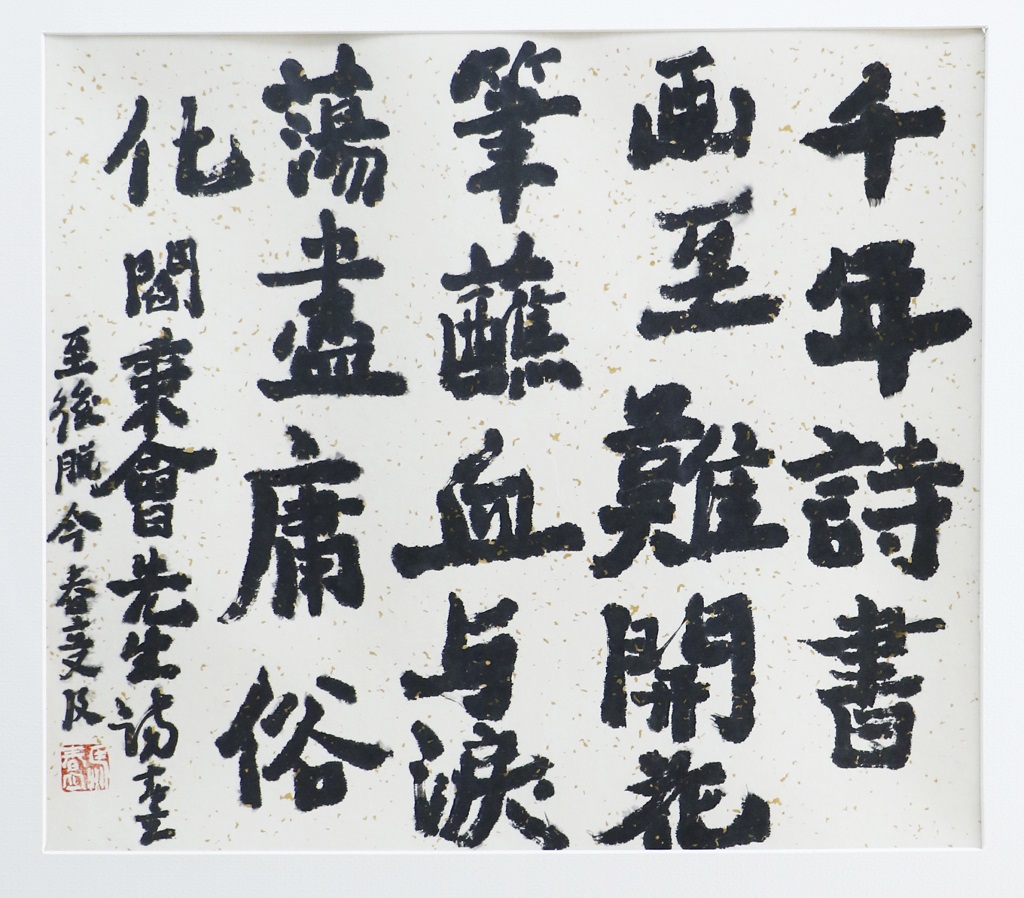 千年詩書
画至難開花
筆蘸血与淚
蕩盡庸俗
化 閻秉會先生詩
至後脱今春